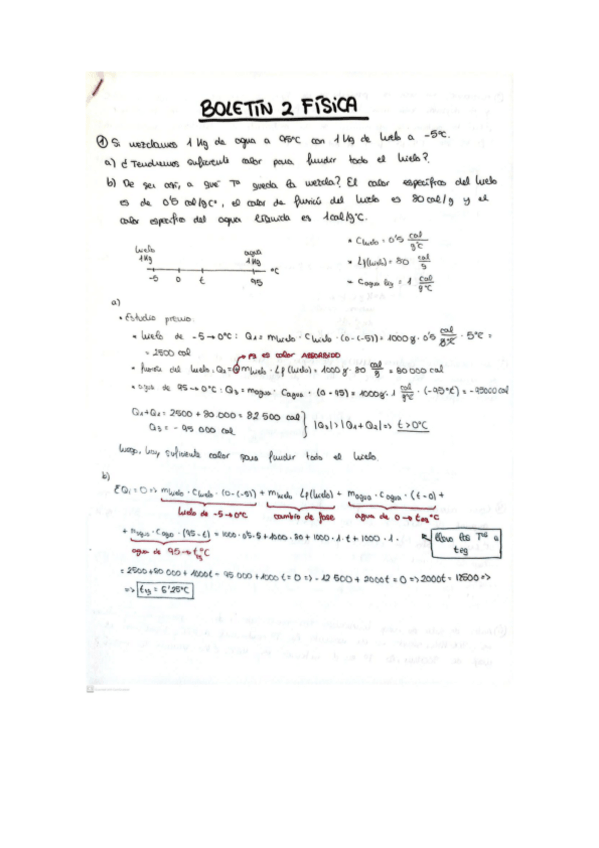 BOLETÍN 2 FÍSICA
① Si mezclamos 1 Kg de agua a 95°C con 1 Kg de hielo a -5°C.
a) ¿Tendremos suficiente calor para fundir todo el hielo?
b) De ser así, a que Tª queda la mezcla? El calor específico del hielo
es de 0'5 cal/gC°, el calor de fusión del hielo es 80 cal/g y el
calor específico del agua líquida es 1cal/g°C.
hielo 1Kg
agua 1Kg
-5 0 t 95 °C
• Chielo = 0'5 cal/g°C
• Lf(hielo) = 80 cal/g
• Cagua liq = 1 cal/g°C
a)
• Estudio previo:
• hielo de -5→0°C: Q1 = mhielo · Chielo · (0-(-5)) = 1000g · 0'5 cal/g°C · 5°C =
= 2500 cal
→ PQ es calor ABSORBIDO
• fusión del hielo: Q2 = ⊕ mhielo · Lf(hielo) = 1000g · 80 cal/g = 80000 cal
• agua de 95→0°C: Q3 = magua · Cagua · (0-95) = 1000g · 1 cal/g°C · (-95°C) = -95000 cal
Q1+Q2 = 2500 + 80.000 = 82 500 cal
Q3 = - 95 000 cal
|Q3|>|Q1+Q2| => t>0°C
Luego, hay suficiente calor para fundir todo el hielo.
b)
ΣQi = 0 => mhielo · Chielo · (0-(-5)) + mhielo Lf(hielo) + magua · Cagua · (t-0) +
hielo de -5→0°C cambio de fase agua de 0→teq°C
+ magua · Cagua · (95-t) = 1000·0'5·5+1000·80+1000·1·t+1000·1·
agua de 95→teq°C
las Tªs a teq
= 2500+80 000+1000t - 95 000+1000t = 0 => -12 500+2000t = 0 => 2000t = 12500 =>
=> teq = 6'25°C